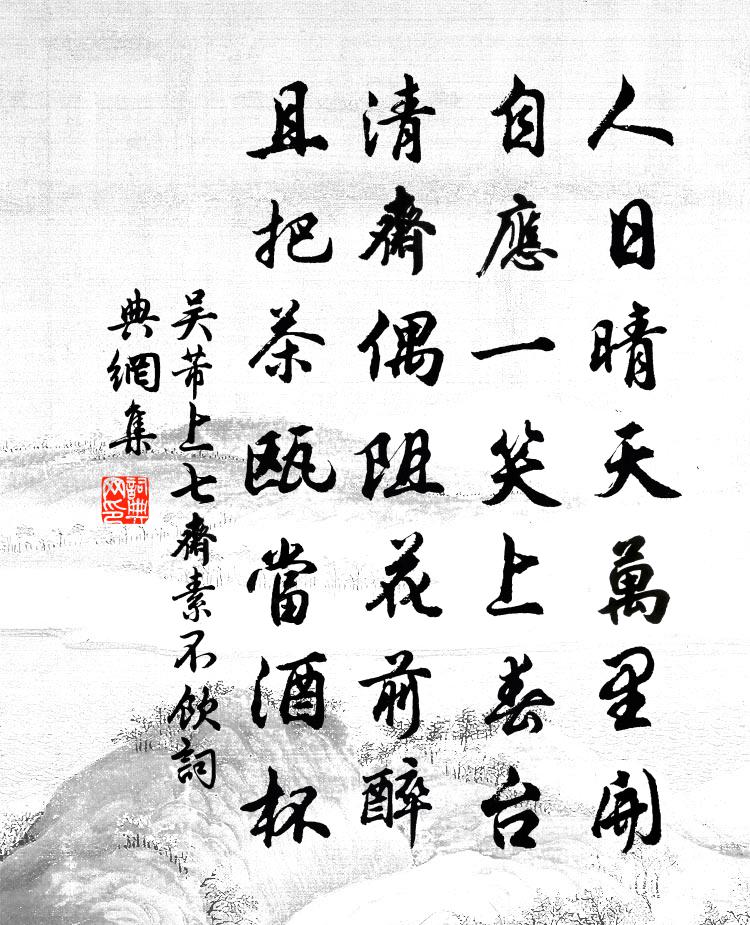 人日晴天萬里開
自應一笑上春台
清齋偶阻花前醉
且把茶甌當酒杯
吳芾上七齋素不飲詞
典網集
詞典
网印